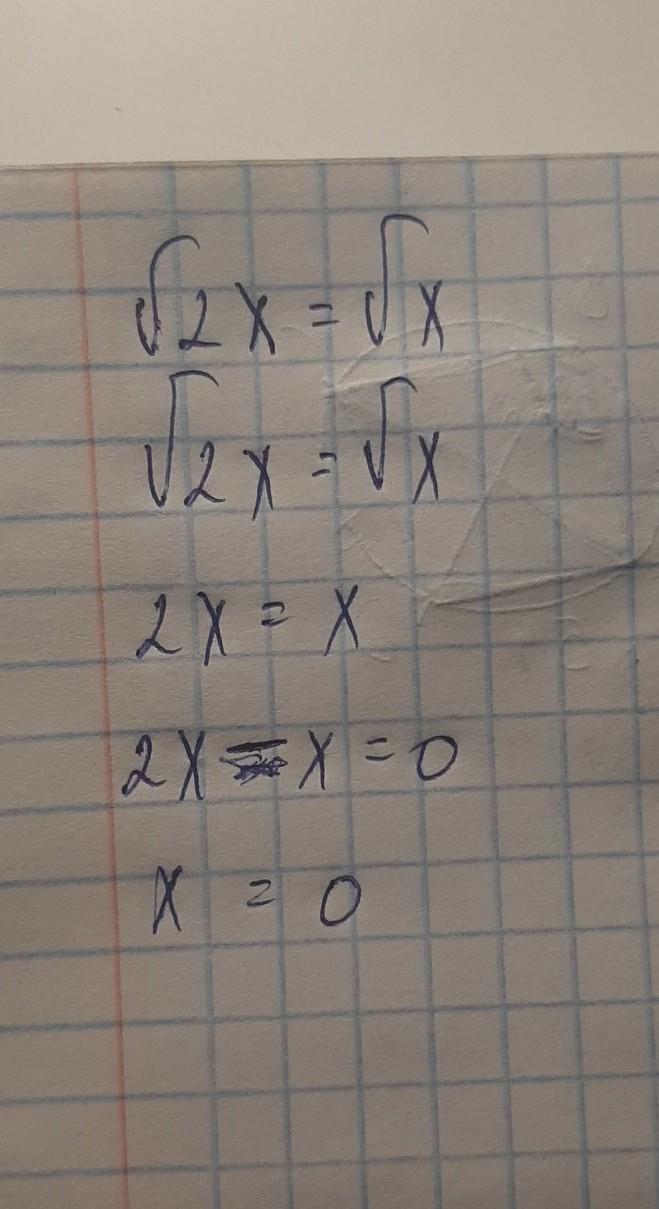 √2x = √x
√2x = √x
2x = x
2x - x = 0
x = 0